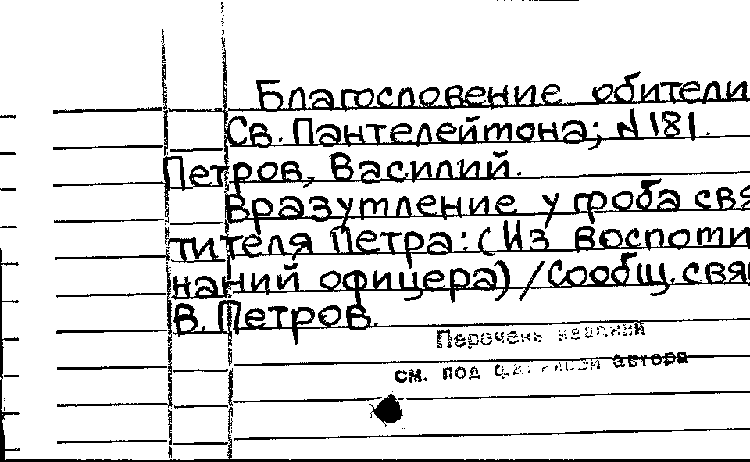 Благословение обители
Св. Пантелеймона; N 181.
Петров, Василий.
Вразумление у гроба свя
тителя Петра: (Из воспоми
наний офицера) / Сообщ. свящ
В. Петров.
Перечень
см. под автора